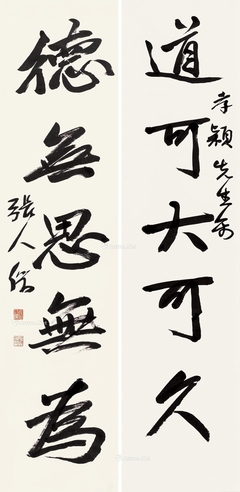 道可大可久
孝颖先生属
德無思無為
張人傑